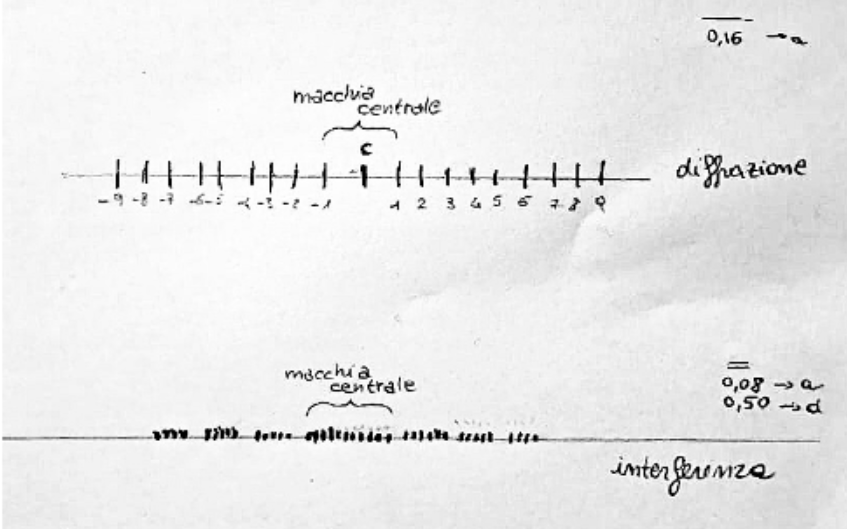 0,16 → a
macchia
centrale
C
diffrazione
-9 -8 -7 -6 -5 -4 -3 -2 -1 1 2 3 4 5 6 7 8 9
macchia
centrale
0,08 → a
0,50 → d
interferenza